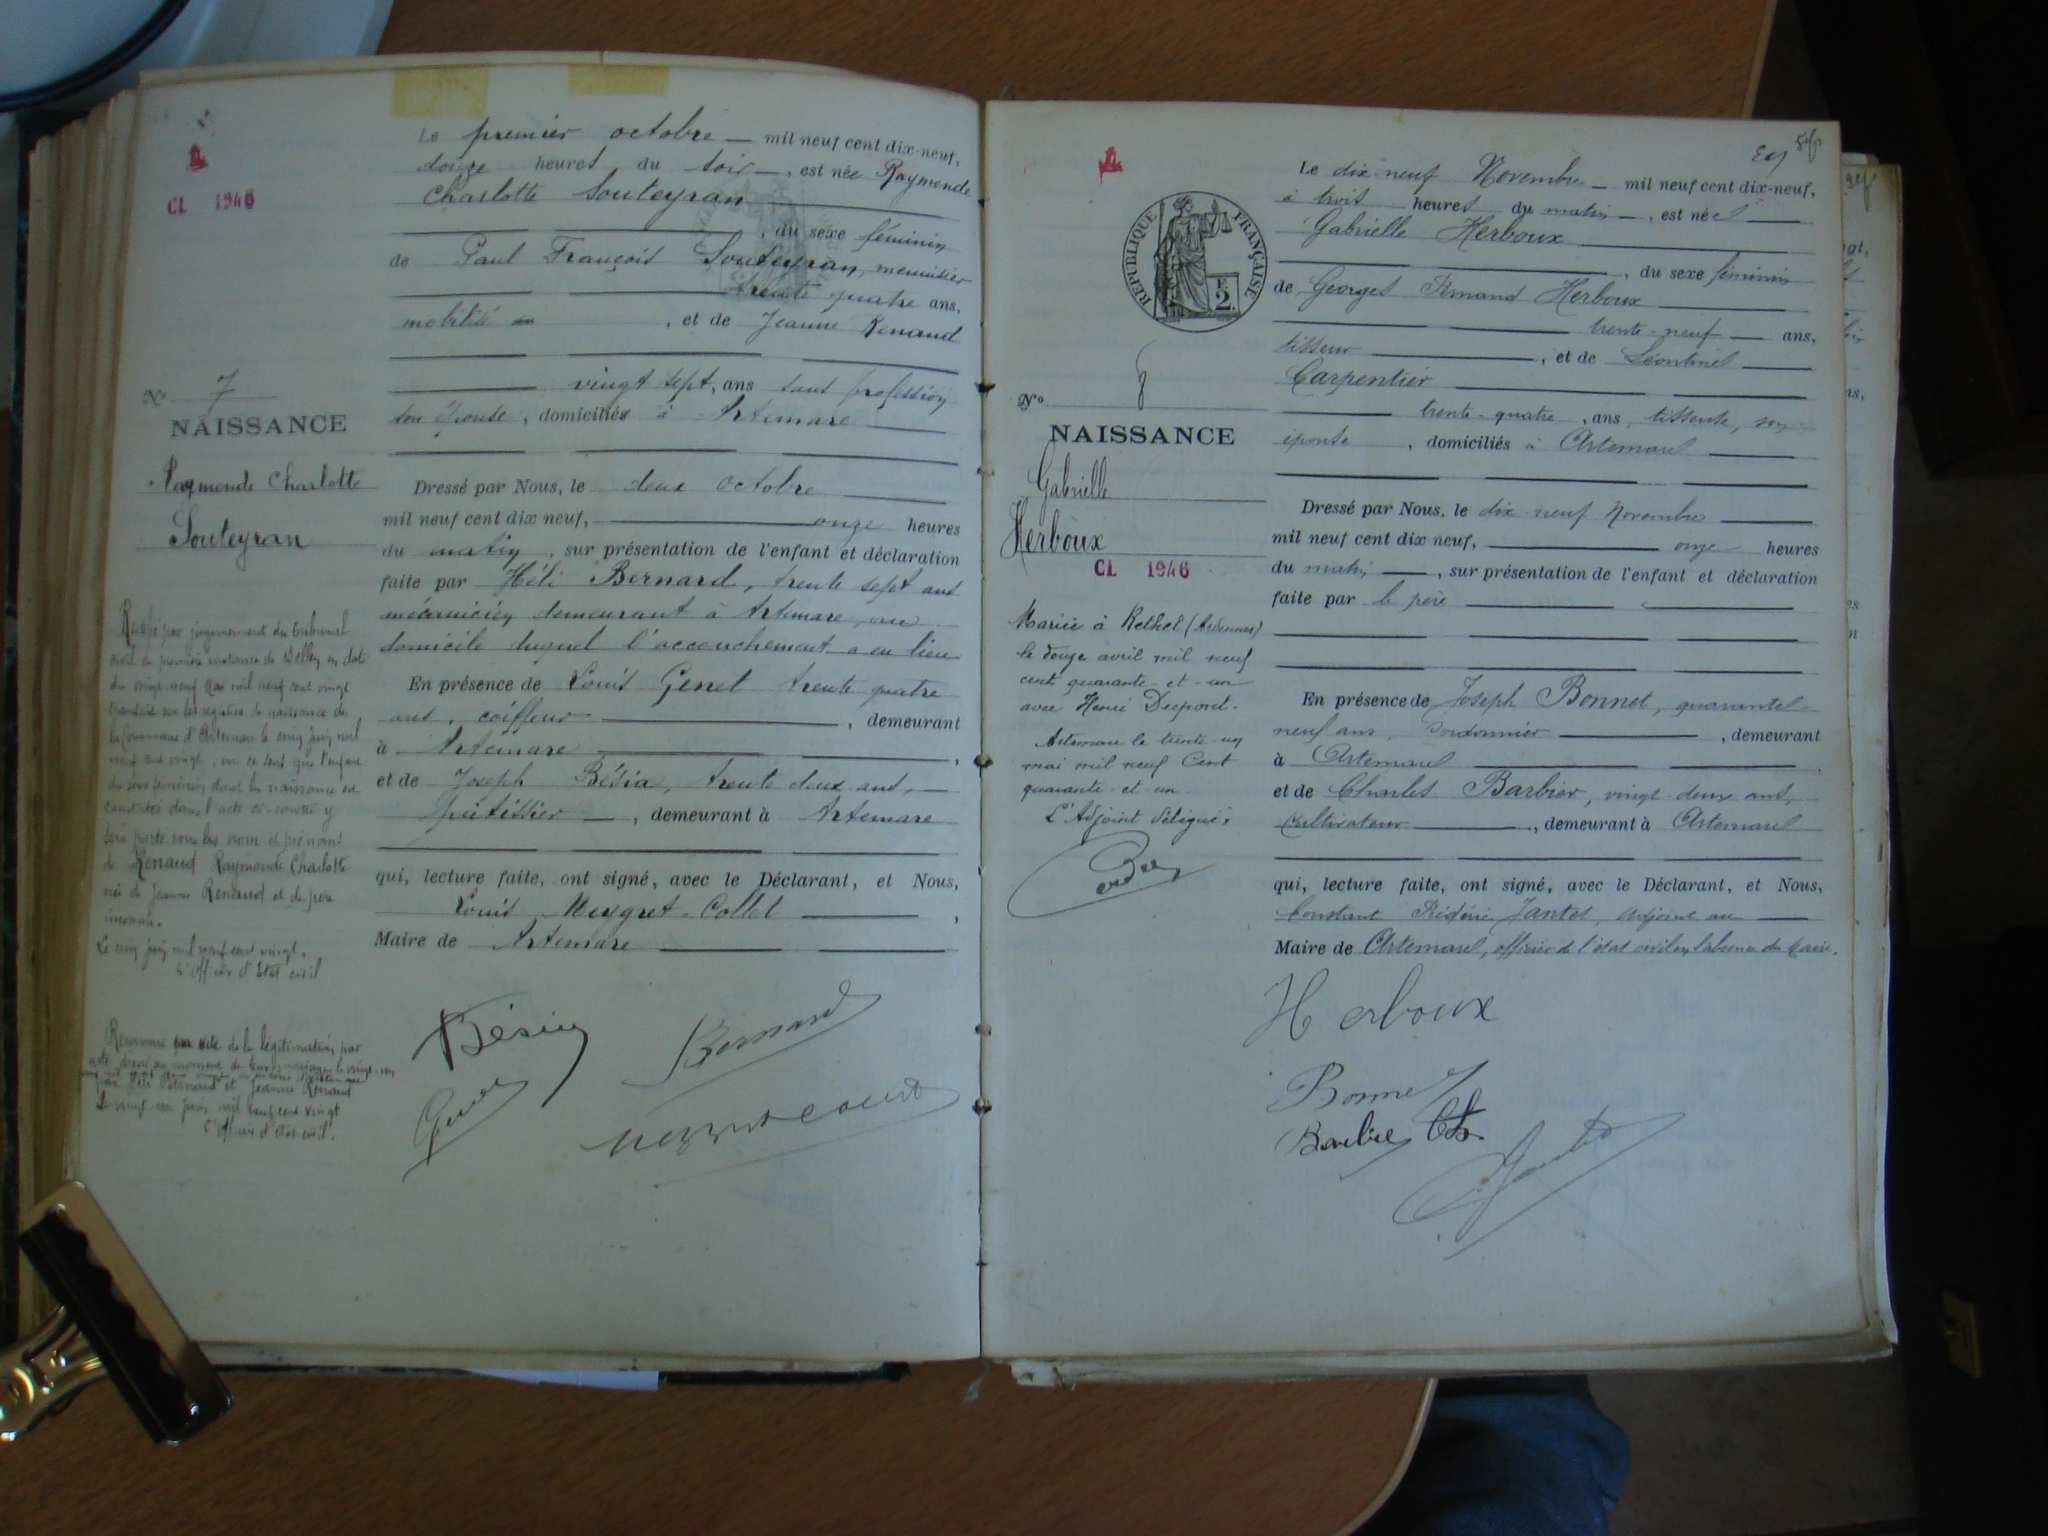 CL 1946
Le premier octobre mil neuf cent dix-neuf,
douze heures du soir, est née Raymonde
Charlotte Souteyran
, du sexe féminin
de Paul François Souteyran, menuisier
trente quatre ans,
mobilisé, et de Jeanne Renaud
vingt sept, ans sans profession
son épouse, domiciliés à Artemare
Nº 7
NAISSANCE
Raymonde Charlotte
Souteyran
Dressé par Nous, le deux octobre
mil neuf cent dix neuf, onze heures
du matin, sur présentation de l'enfant et déclaration
faite par Héli Bernard, trente sept ans
mécanicien demeurant à Artemare, au
domicile duquel l'accouchement a eu lieu
En présence de Louis Genet trente quatre
ans, coiffeur, demeurant
à Artemare,
et de Joseph Bésia, trente deux ans,
pâtissier, demeurant à Artemare
qui, lecture faite, ont signé, avec le Déclarant, et Nous,
Louis Meygret-Collet,
Maire de Artemare
Rectifié par jugement du tribunal
civil de première instance de Belley en date
du vingt neuf mai mil neuf cent vingt
transcrit sur les registres de naissance de
la commune d'Artemare le cinq juin mil
neuf cent vingt, en ce sens que l'enfant
du sexe féminin dont la naissance est
constatée dans l'acte ci-contre y
sera porté sous les nom et prénoms
de Renaud Raymonde Charlotte
née de Jeanne Renaud et de père
inconnu.
Le cinq juin mil neuf cent vingt.
L'Officier d'Etat civil
Reconnue en vue de la légitimation par
acte dressé au moment de leur mariage le vingt un
par Héli Bernard et Jeanne Renaud
Le vingt un juin mil neuf cent vingt
L'Officier d'Etat civil.
Bésia
Bernard
Genet
RÉPUBLIQUE FRANÇAISE
F.
2.
Le dix-neuf Novembre mil neuf cent dix-neuf,
à trois heures du matin, est née
Gabrielle Herboux
, du sexe féminin
de Georges Armand Herboux
trente-neuf ans,
tisseur, et de Léontine
Carpentier
trente-quatre, ans, tisseuse, son
épouse, domiciliés à Artemare
Nº 8
NAISSANCE
Gabrielle
Herboux
CL 1946
Dressé par Nous, le dix neuf Novembre
mil neuf cent dix neuf, onze heures
du matin, sur présentation de l'enfant et déclaration
faite par le père
En présence de Joseph Bonnet, quarante-
neuf ans, Cordonnier, demeurant
à Artemare,
et de Charles Barbier, vingt deux ans,
Cultivateur, demeurant à Artemare
qui, lecture faite, ont signé, avec le Déclarant, et Nous,
Constant Jantet, adjoint au
Maire de Artemare, officier de l'état civil en l'absence du Maire.
Mariée à Rethel (Ardennes)
le douze avril mil neuf
cent quarante-et-un
avec Henri Dupont.
Artemare le trente-un
mai mil neuf Cent
quarante-et-un.
L'Adjoint délégué,
Herboux
Bonnet
Barbier Ch.
Jantet